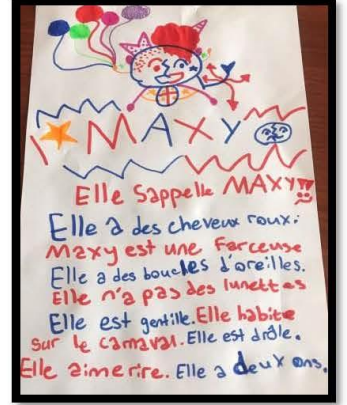 MAXY
Elle s'appelle MAXY!!
Elle a des cheveux roux.
Maxy est une Farceuse
Elle a des boucles d'oreilles.
Elle n'a pas des lunettes
Elle est gentille. Elle habite
sur le carnaval. Elle est drôle.
Elle aime rire. Elle a deux ans.